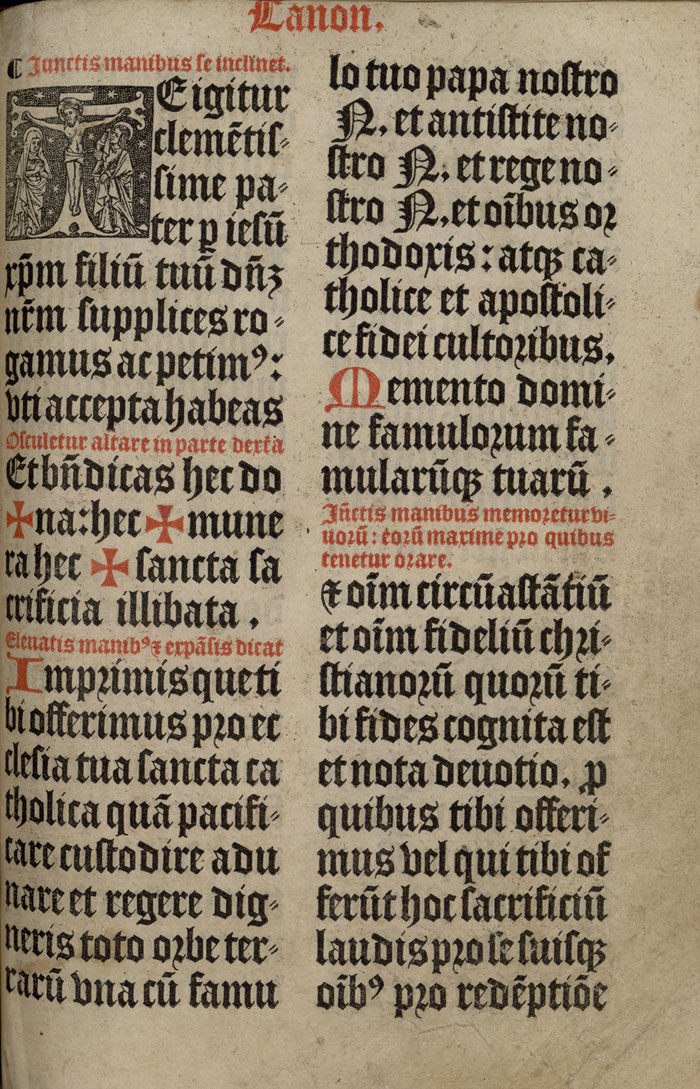 Canon.
¶ Junctis manibus se inclinet.
TEigitur
clemētis-
sime pa-
ter ꝑ iesū
xp̄m filiū tuū dn̄ꝫ
nr̄m supplices ro-
gamus ac petimꝰ:
vti accepta habeas
Osculetur altare in parte dext̄a
Et bn̄dicas hec do
✠ na: hec ✠ mune
ra hec ✠ sancta sa
crificia illibata.
Eleuatis manibꝰ ⁊ expāsis dicat
Imprimis que ti
bi offerimus pro ec
clesia tua sancta ca
tholica quā pacifi-
care custodire adu
nare et regere dig-
neris toto orbe ter-
rarū vna cū famu
lo tuo papa nostro
N. et antistite no-
stro N. et rege no-
stro N. et oībus or
thodoxis: atqꝫ ca-
tholice et apostoli-
ce fidei cultoribus.
Memento domi-
ne famulorum fa-
mularūqꝫ tuarū.
Jūctis manibus memoretur vi-
uorū: eorū maxime pro quibus
tenetur orare.
⁊ oīm circūastātiū
et oīm fideliū chri-
stianorū quorū ti-
bi fides cognita est
et nota deuotio. ꝓ
quibus tibi offeri-
mus vel qui tibi of
ferūt hoc sacrificiū
laudis pro se suisqꝫ
oībꝰ pro redēptiōe